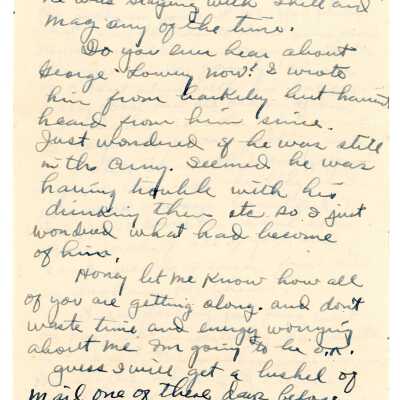 he was staying with Shell and
Mag any of the time.
Do you ever hear about
George Lowey now? I wrote
him from but havent
heard from him since.
Just wondered if he was still
in the Army. Seemed he was
having trouble with his
drinking then etc so I just
wondered what had become
of him.
Honey let me know how all
of you are getting along. and don't
waste time and energy worrying
about me I'm going to be O.K.
guess I will get a bushel of
mail one of these days before